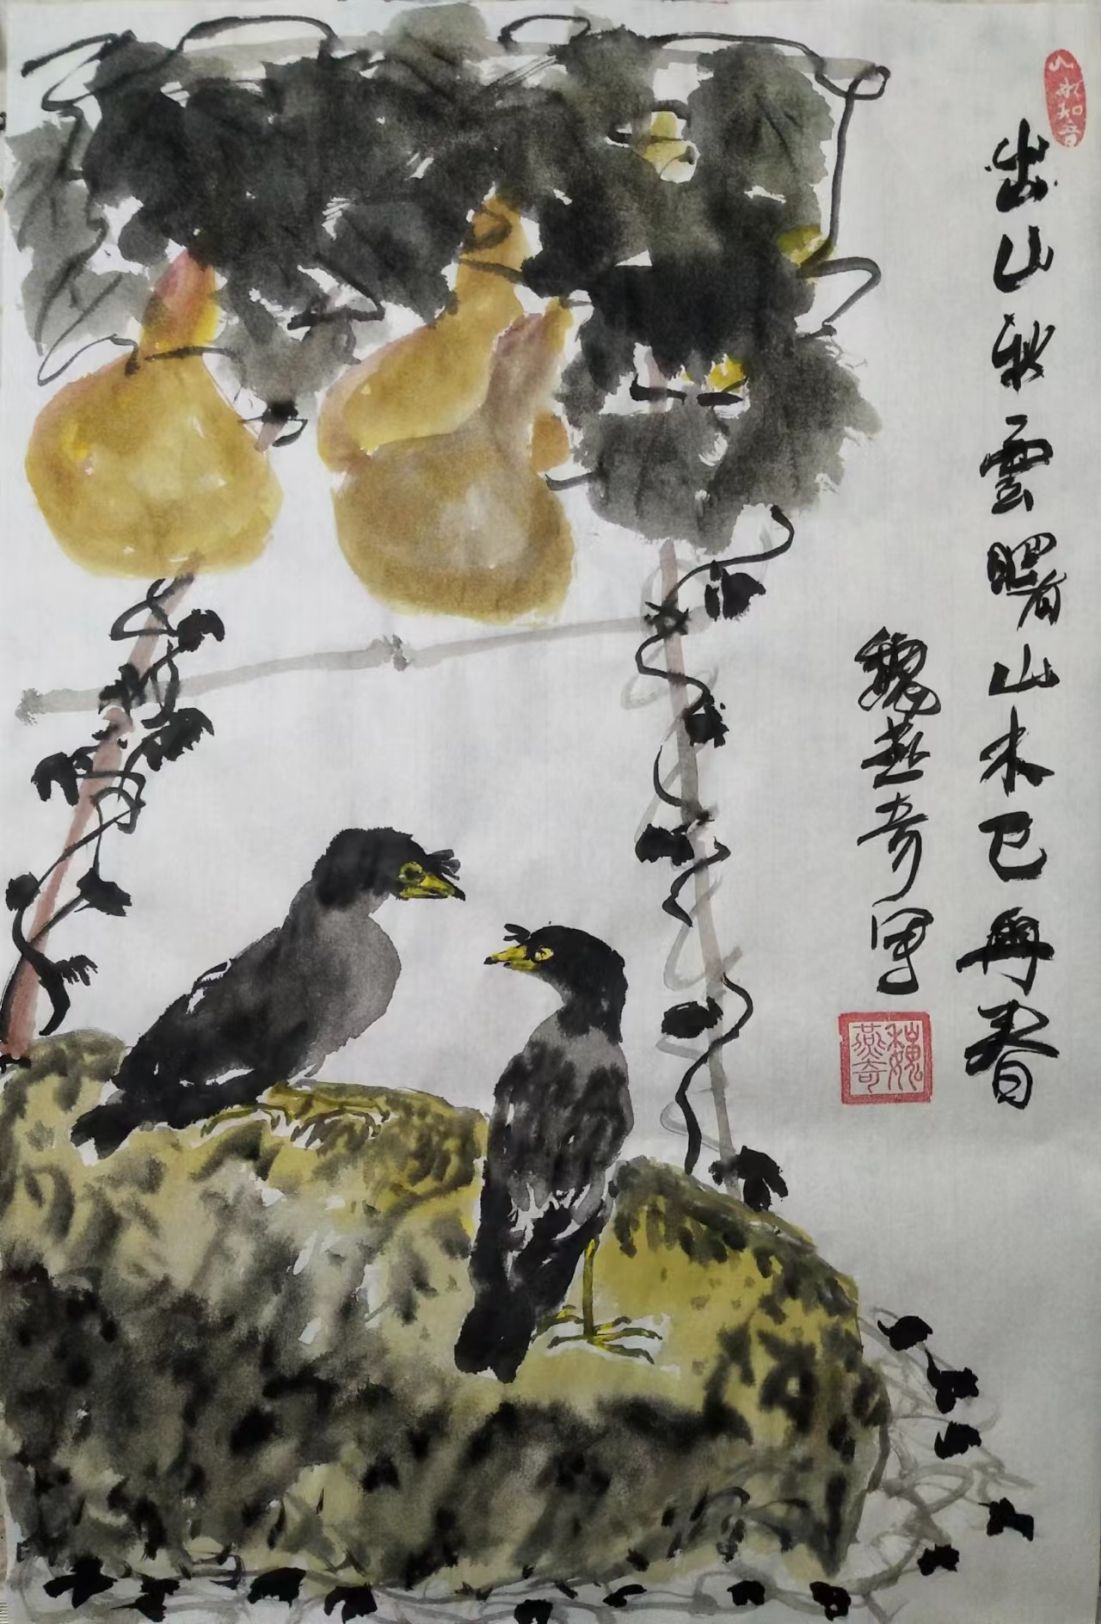 山水知音
出山秋雲曙山木已再春
魏燕奇写
魏燕奇